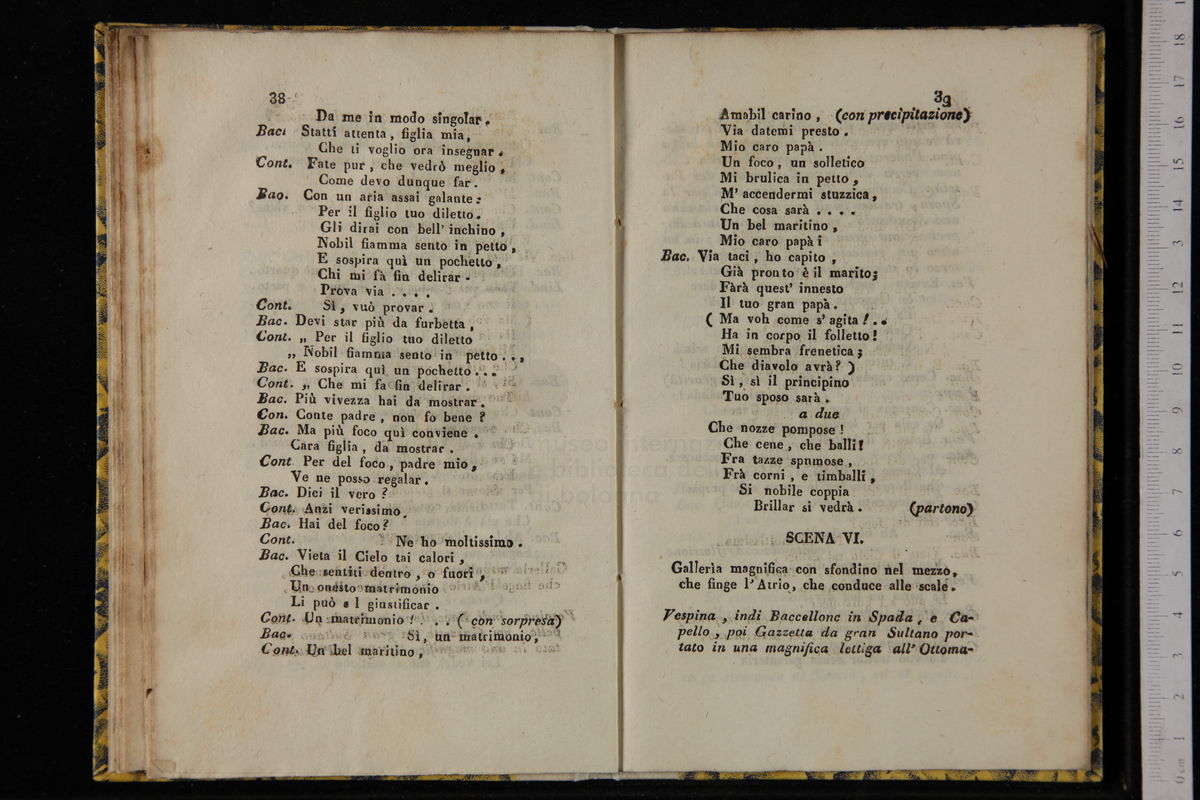 38
Da me in modo singolar.
Bac. Statti attenta, figlia mia,
Che ti voglio ora insegnar.
Cont. Fate pur, che vedrò meglio,
Come devo dunque far.
Bac. Con un aria assai galante:
Per il figlio tuo diletto.
Gli dirai con bell' inchino,
Nobil fiamma sento in petto,
E sospira quì un pochetto,
Chi mi fà fin delirar.
Prova via . . . .
Cont. Sì, vuò provar.
Bac. Devi star più da furbetta,
Cont. „ Per il figlio tuo diletto
„ Nobil fiamma sento in petto . . ,
Bac. E sospira quì un pochetto . . .
Cont. „ Che mi fa fin delirar.
Bac. Più vivezza hai da mostrar.
Con. Conte padre, non fo bene?
Bac. Ma più foco quì conviene.
Cara figlia, da mostrar.
Cont Per del foco, padre mio,
Ve ne posso regalar.
Bac. Dici il vero?
Cont. Anzi verissimo.
Bac. Hai del foco?
Cont. Ne ho moltissimo.
Bac. Vieta il Cielo tai calori,
Che sentiti dentro, o fuori,
Un onesto matrimonio
Li può s l giustificar.
Cont. Un matrimonio! . . . (con sorpresa)
Bac. Sì, un matrimonio,
Cont. Un bel maritino,
39
Amabil carino, (con precipitazione)
Via datemi presto.
Mio caro papà.
Un foco, un solletico
Mi brulica in petto,
M' accendermi stuzzica,
Che cosa sarà . . . .
Un bel maritino,
Mio caro papà!
Bac. Via taci, ho capito,
Già pronto è il marito;
Fàrà quest' innesto
Il tuo gran papà.
( Ma voh come s' agita! . .
Ha in corpo il folletto!
Mi sembra frenetica;
Che diavolo avrà? )
Sì, sì il principino
Tuo sposo sarà.
a due
Che nozze pompose!
Che cene, che balli!
Fra tazze spumose,
Frà corni, e timballi,
Si nobile coppia
Brillar si vedrà. (partono)
SCENA VI.
Galleria magnifica con sfondino nel mezzo,
che finge l' Atrio, che conduce alle scale.
Vespina, indi Baccellone in Spada, e Ca-
pello, poi Gazzetta da gran Sultano por-
tato in una magnifica lettiga all' Ottoma-